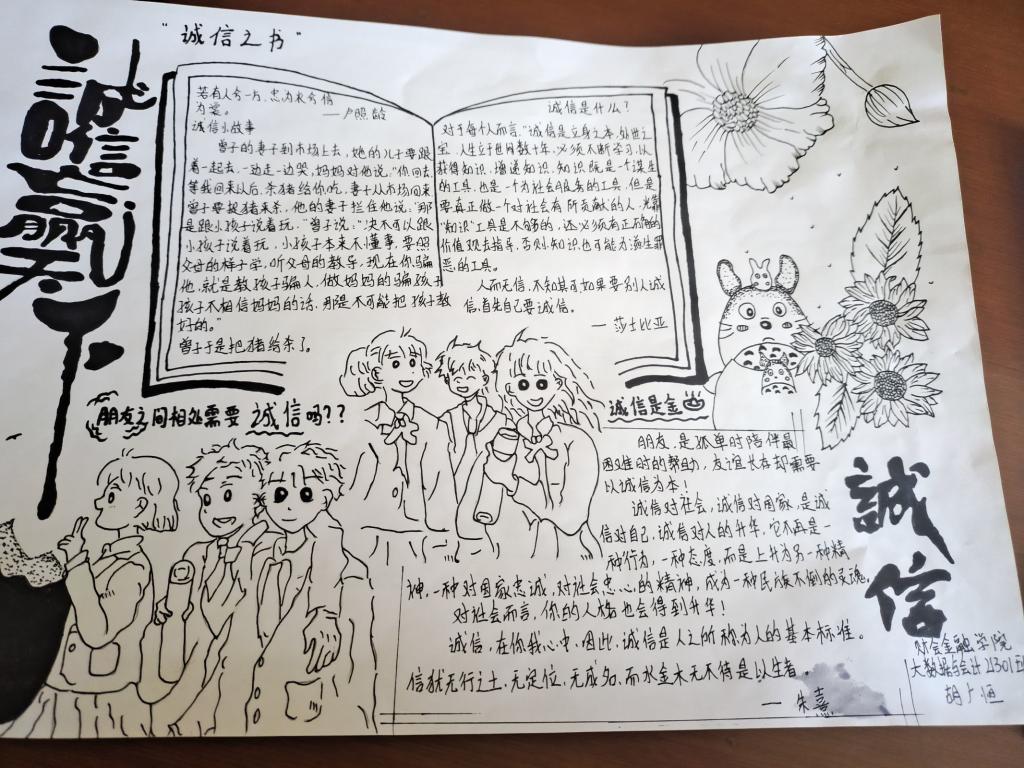 誠信赢天下
“诚信之书”
若有人兮一方,忠为衣兮信
为裳。
—卢照龄
诚信小故事
曾子的妻子到市场上去,她的儿子要跟
着一起去,一边走一边哭,妈妈对他说,“你回去
等我回来以后,杀猪给你吃,妻子从市场回来
曾子要捉猪来杀,他的妻子拦住他说,“那
是跟小孩子说着玩,”曾子说:“决不可以跟
小孩子说着玩,小孩子本来不懂事,要照
父母的样子学,听父母的教导,现在你骗
他,就是教孩子骗人,做妈妈的骗孩子
孩子不相信妈妈的话,那是不可能把孩子教
好的。”
曾子于是把猪给杀了。
诚信是什么?
对于每个人而言,“诚信是立身之本,处世之
宝,人生立于世间数十年,必须不断学习,以
获得知识,增进知识,知识既是一个谋生
的工具,也是一个为社会服务的工具,但是
要真正做一个对社会有所贡献的人,光靠
“知识”工具是不够的,还必须有正确的
价值观去指导,否则知识也可能为滋生罪
恶的工具。
人而无信,不知其可如果要别人诚
信,首先自己要诚信。
—莎士比亚
朋友之间相处需要诚信吗??
诚信是金
朋友,是孤单时陪伴最
困难时的帮助,友谊长存却需要
以诚信为本!
诚信对社会,诚信对国家,是诚
信对自己,诚信对人的升华,它不再是一
种行为,一种态度,而是上升为另一种精
神,一种对国家忠诚,对社会忠心的精神,成为一种民族不倒的灵魂,
对社会而言,你的人格也会得到升华!
诚信,在你我心中,因此,诚信是人之所称为人的基本标准。
信犹无行之土,无定位,无成名,而水金木无不待是以生者。
—朱熹
誠信
财会金融学院
大数据与会计2301班
胡广恒